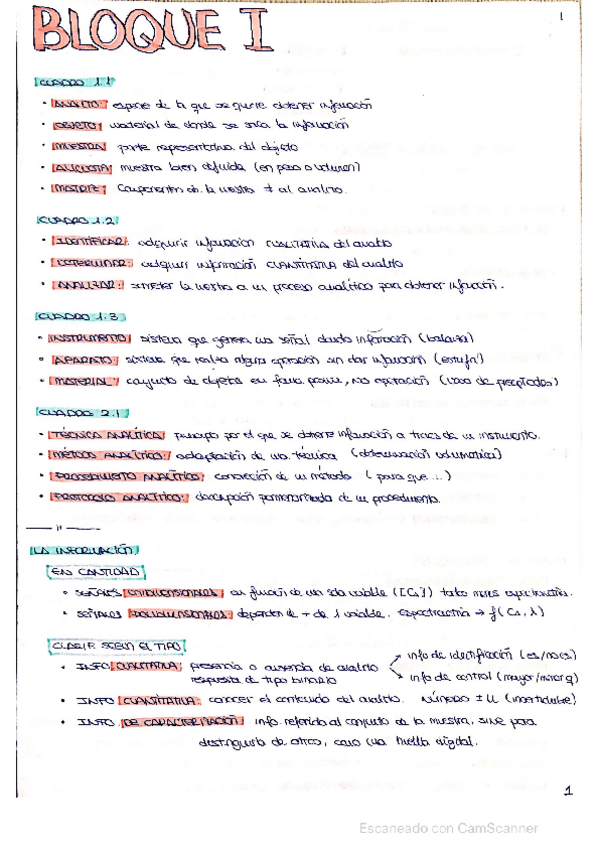 1
BLOQUE I
CUADRO 1.1
• ANALITO: especie de la que se quiere obtener información
• OBJETO: material de donde se saca la información
• MUESTRA: parte representativa del objeto
• ALICUOTA: muestra bien definida (en peso o volumen)
• MATRIZ: Componentes de la muestra ≠ al analito.
CUADRO 1.2
• IDENTIFICAR: adquirir información CUALITATIVA del analito
• DETERMINAR: adquirir información CUANTITATIVA del analito
• ANALIZAR: someter la muestra a un proceso analítico para obtener información.
CUADRO 1.3
• INSTRUMENTO: sistema que genera una señal dando información (balanza)
• APARATO: sistema que realiza alguna operación sin dar información (estufa)
• MATERIAL: conjunto de objetos en forma, no operación (vaso de precipitados)
CUADRO 2.1
• TÉCNICA ANALÍTICA: principio por el que se obtiene información a través de un instrumento.
• MÉTODO ANALÍTICO: adaptación de una técnica (determinación volumétrica)
• PROCEDIMIENTO ANALÍTICO: concreción de un método (para que ...)
• PROTOCOLO ANALÍTICO: descripción pormenorizada de un procedimiento.
LA INFORMACIÓN
EN CANTIDAD
• SEÑALES UNIDIMENSIONALES: en función de una sola variable
• SEÑALES: dependen de + de 1 variable. espectrometría → f(Cs, λ)
CLASIF. SEGÚN EL TIPO
• INFO CUALITATIVA: presencia o ausencia de analito → info de identificación (es/no es)
respuesta de tipo binario → info de control (mayor/menor q)
• INFO CUANTITATIVA: conocer el contenido del analito. Número ± U (incertidumbre)
• INFO DE CARACTERIZACIÓN: info. referida al conjunto de la muestra, sirve para
distinguirla de otros, como una huella digital.
1
Escaneado con CamScanner